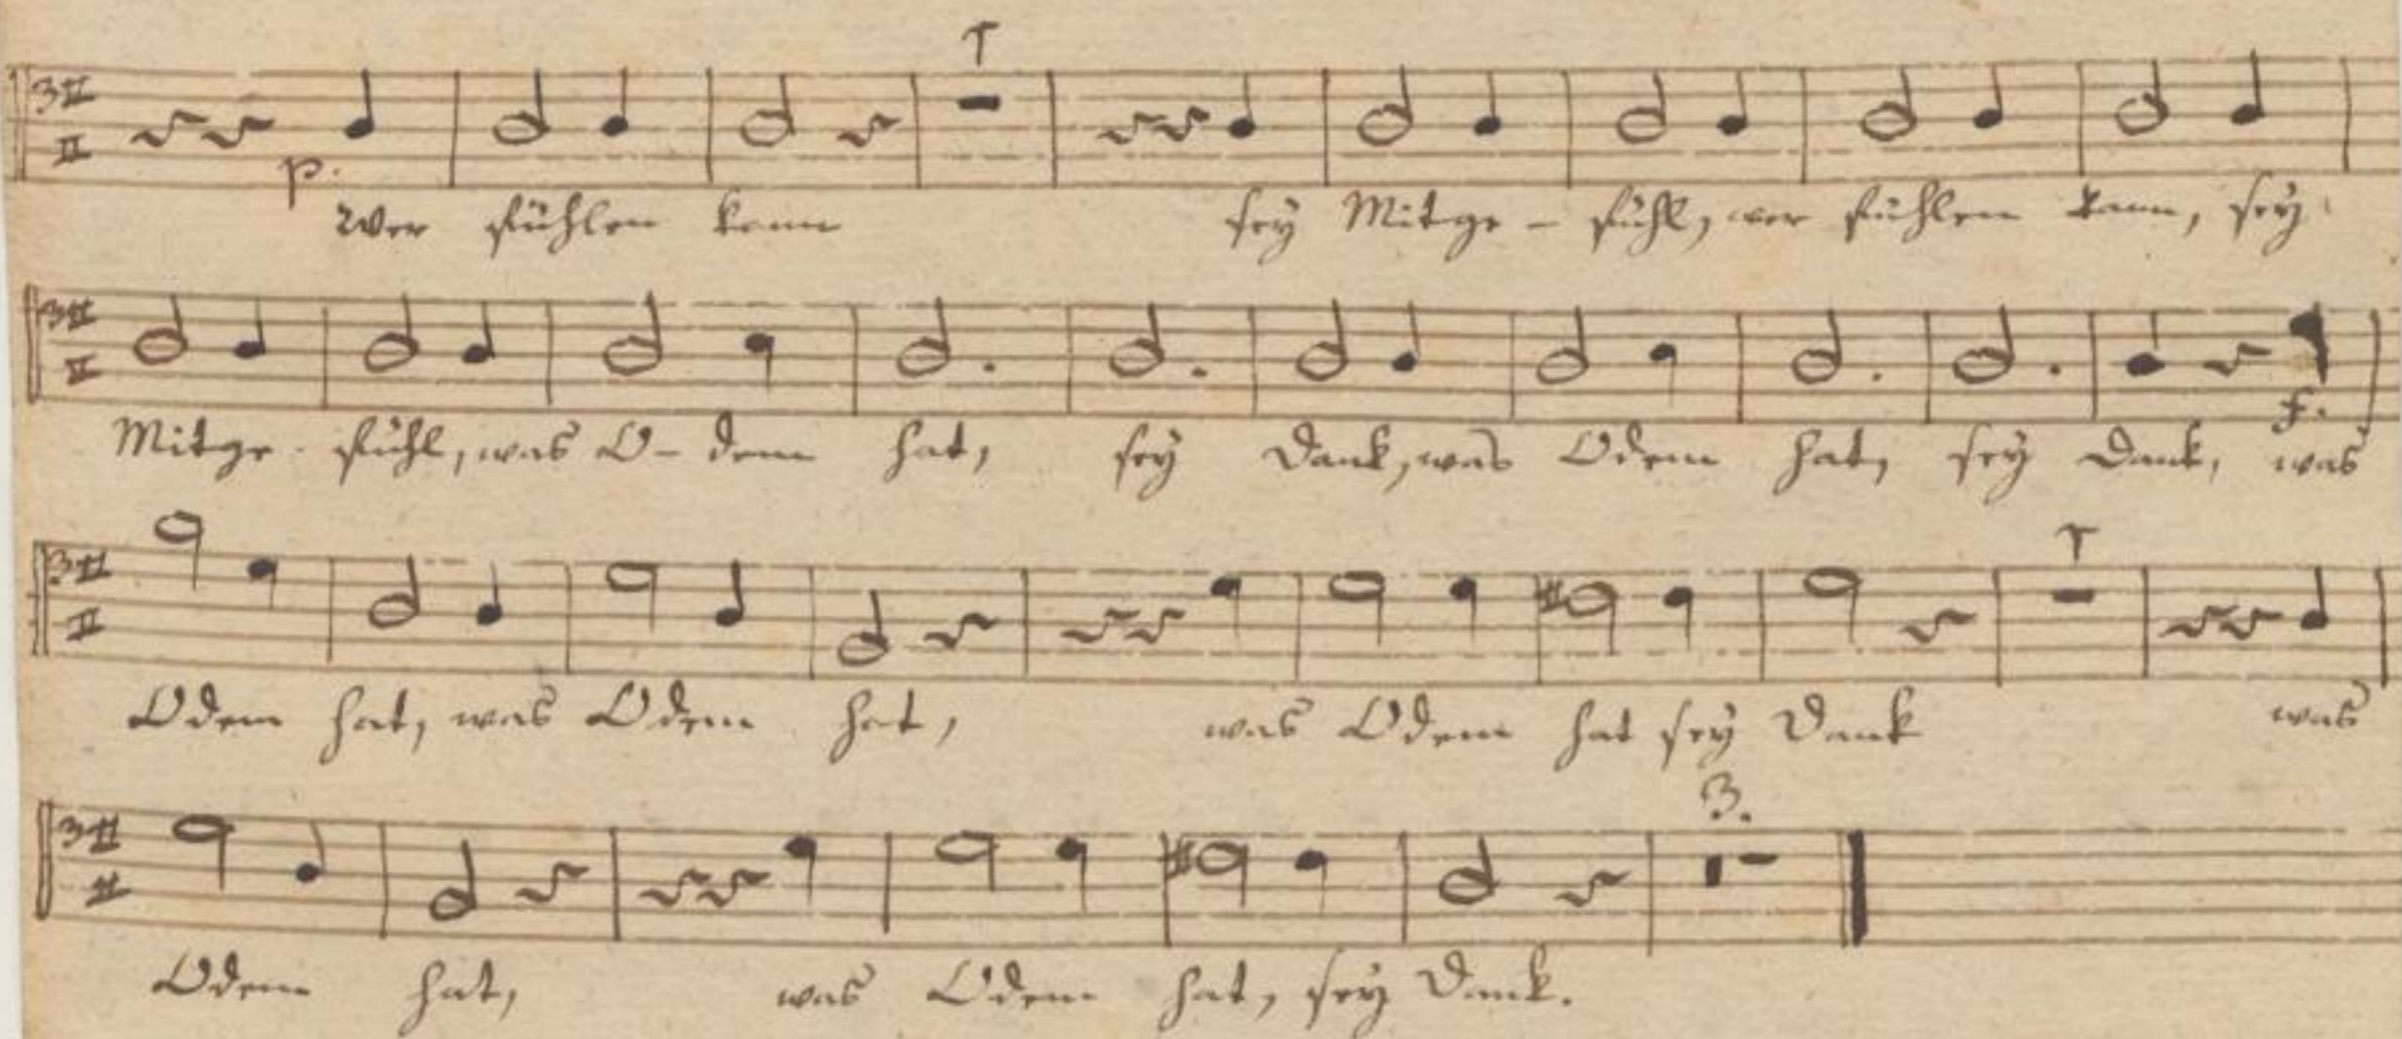 T
p.
Wer fühlen kann sey Mitge - fühl, wer fühlen kann, sey
Mitge - fühl, was O - dem hat, sey Dank, was Odem hat, sey Dank, was
f.
T
Odem hat, was Odem hat, was Odem hat sey Dank was
3.
Odem hat, was Odem hat, sey Dank.